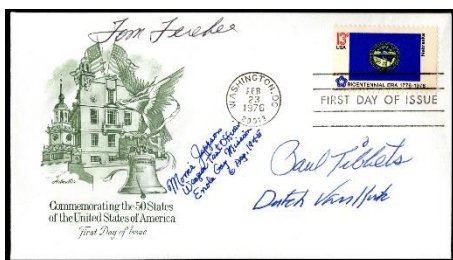 Tom Ferebee
13¢
USA
Nebraska
BICENTENNIAL ERA 1776-1976
WASHINGTON, DC
FEB
23
1976
20013
FIRST DAY OF ISSUE
Morris Jeppson
Weapon Test Officer
Enola Gay Mission
6 Aug. 1945
Paul Tibbets
Dutch Van Kirk
Commemorating the 50 States
of the United States of America
First Day of Issue